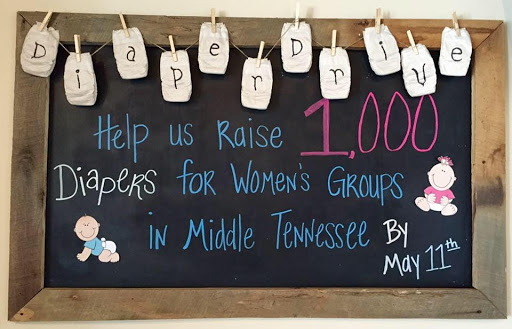 Diaper Drive
Help us Raise 1,000
Diapers for Women's Groups
in Middle Tennessee By
May 11th